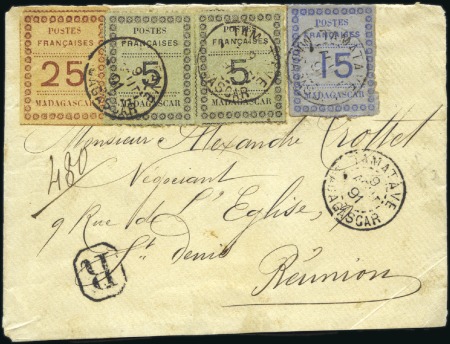 POSTES POSTES POSTES POSTES
FRANÇAISES FRANÇAISES FRANÇAISES FRANÇAISES
25 5 5 15
MADAGASCAR MADAGASCAR MADAGASCAR MADAGASCAR
Monsieur Alexandre Crottet
480
Négociant
9 Rue de L'Eglise,
St Denis
Réunion
TAMATAVE
9
91
MADAGASCAR
R